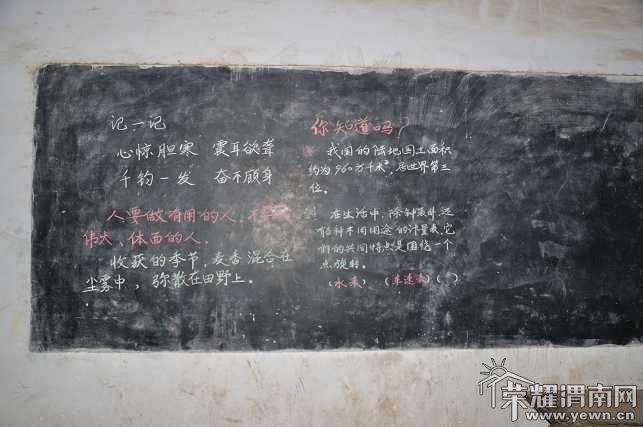 记一记
心惊胆寒 震耳欲聋
千钧一发 奋不顾身
人要做有用的人,不要做
伟大、体面的人.
收获的季节,麦香混合在
尘雾中,弥散在田野上。
你知道吗?
我国的陆地国土面积
约为960万千米²,居世界第三
位。
在生活中,除钟表外,还
有各种不同用途的计量表,它
们的共同特点是围绕一个
点旋转。
(水表) (车速表) ( )
荣耀渭南网
www.yewn.cn